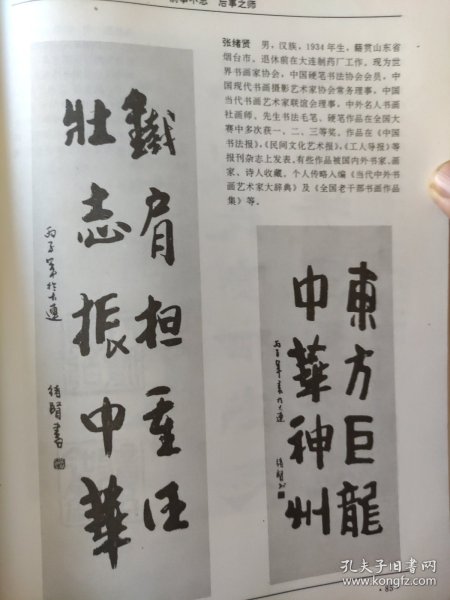 前事不忘 后事之师
张绪贤 男，汉族，1934年生，籍贯山东省
烟台市。退休前在大连制药厂工作。现为世
界书画家协会，中国硬笔书法协会会员，中
国现代书画摄影艺术家协会常务理事，中国
当代书画艺术家联谊会理事，中外名人书画
社画师、先生书法毛笔、硬笔作品在全国大
赛中多次获一、二、三等奖。作品在《中国
书法报》、《民间文化艺术报》、《工人导报》等
报刊杂志上发表。有些作品被国内外书家、画
家、诗人收藏。个人传略入编《当代中外书
画艺术家大辞典》及《全国老干部书画作品
集》等。
鐵肩担重任
壯志振中華
丙子第於大連
绪賢書
東方巨龍
中華神州
丙子年書於大連
绪賢
·85·
孔夫子旧书网
www.kongfz.com